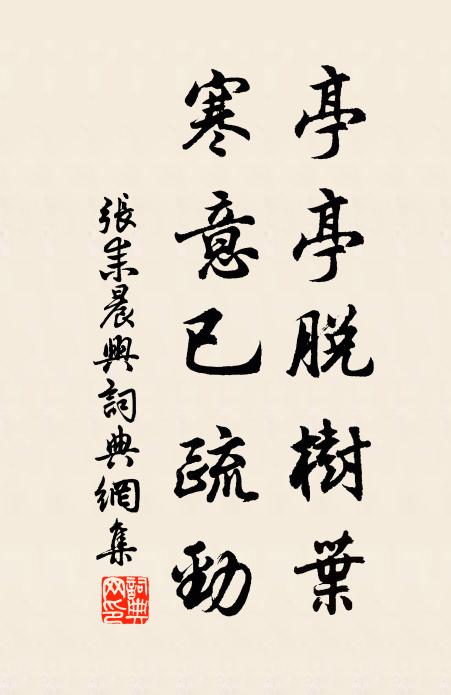 亭亭脱樹葉
寒意已疏勁
張耒晨興詞典網集
詞典
网印